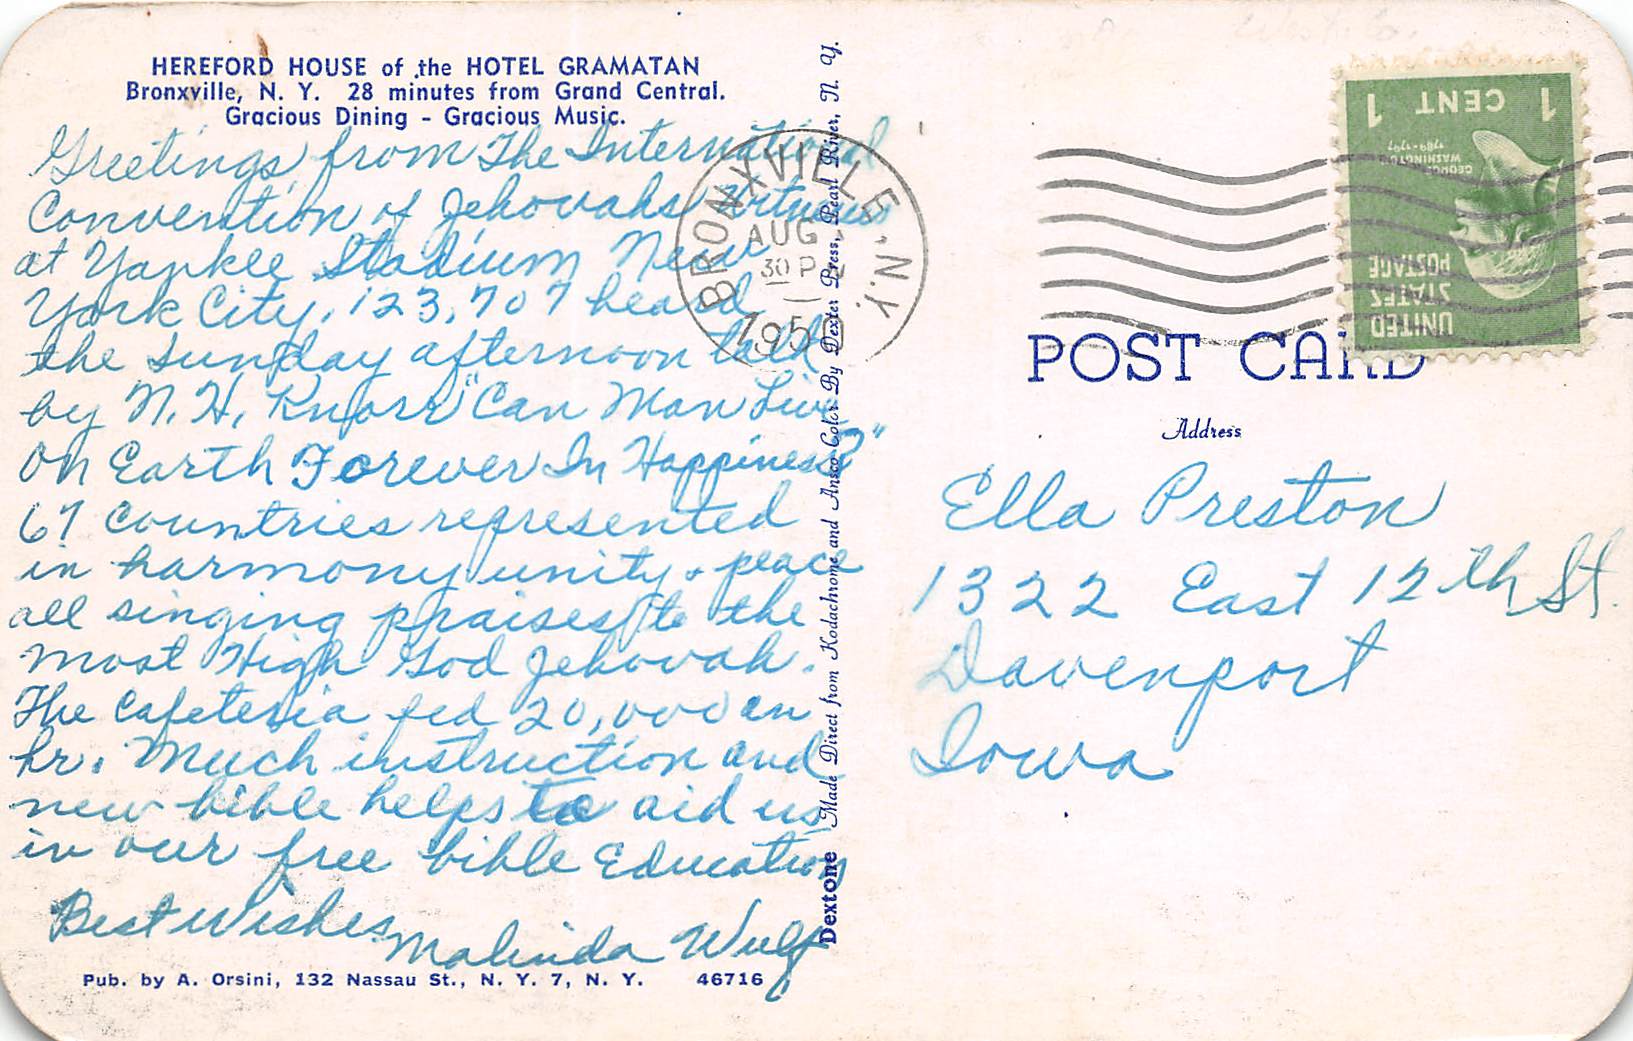 HEREFORD HOUSE of the HOTEL GRAMATAN
Bronxville, N. Y. 28 minutes from Grand Central.
Gracious Dining - Gracious Music.
Greetings from The International
Convention of Jehovahs Witnesses
at Yankee Stadium New
York City, 123,707 heard
the Sunday afternoon talk
by N. H. Knorr "Can Man Live
On Earth Forever In Happiness?"
67 countries represented
in harmony unity & peace
all singing praises to the
Most High God Jehovah.
The Cafeteria fed 20,000 an
hr. Much instruction and
new bible helps to aid us
in our free bible Education
Best Wishes
Malinda Wulf
Pub. by A. Orsini, 132 Nassau St., N. Y. 7, N. Y. 46716
Dextone Made Direct from Kodachrome and Ansco Color By Dexter Press, Pearl River, N. Y.
BRONXVILLE N.Y.
AUG
30 P
1950
UNITED
STATES
POSTAGE
GEORGE
WASHINGTON
1789-1797
1 CENT 1
POST CARD
Address
Ella Preston
1322 East 12th St.
Davenport
Iowa